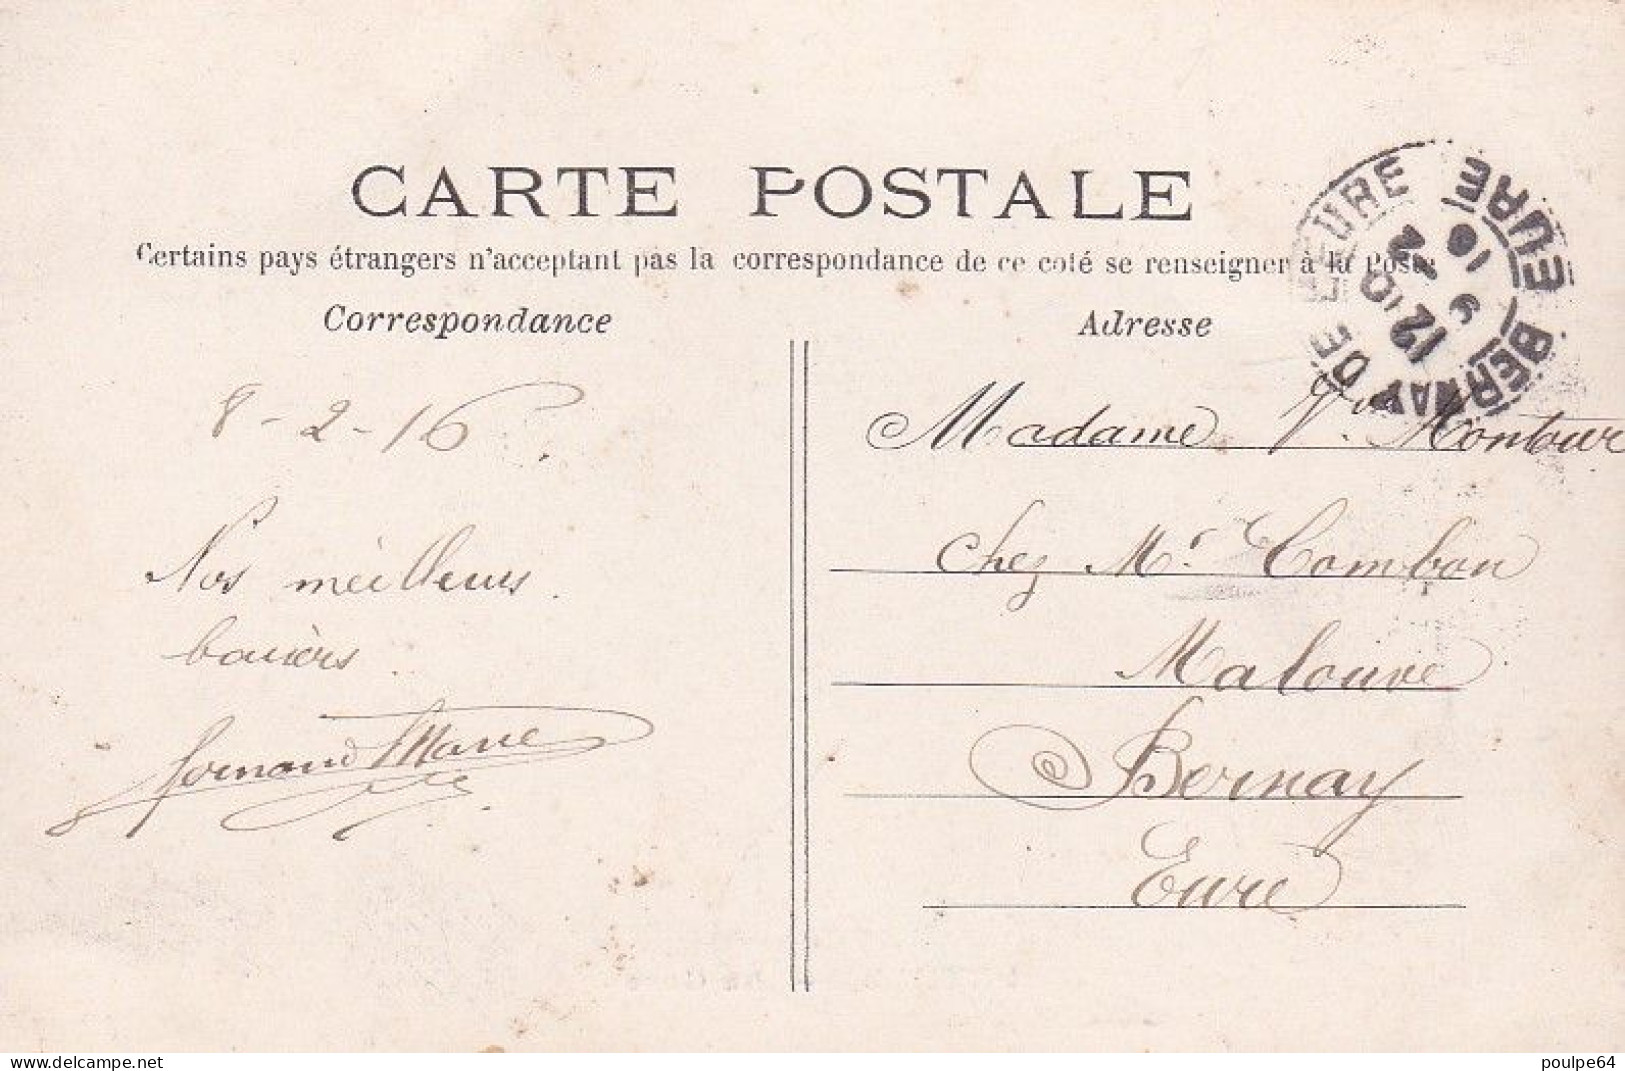 CARTE POSTALE
Certains pays étrangers n'acceptant pas la correspondance de ce coté se renseigner à la Poste
Correspondance
Adresse
8-2-16
Nos meilleurs
baisers
Fernand Marie
Madame Vve Montour
chez Mr Combon
Malouve
Bernay
Eure
BERNAY DE L'EURE
EURE
www.delcampe.net
poulpe64